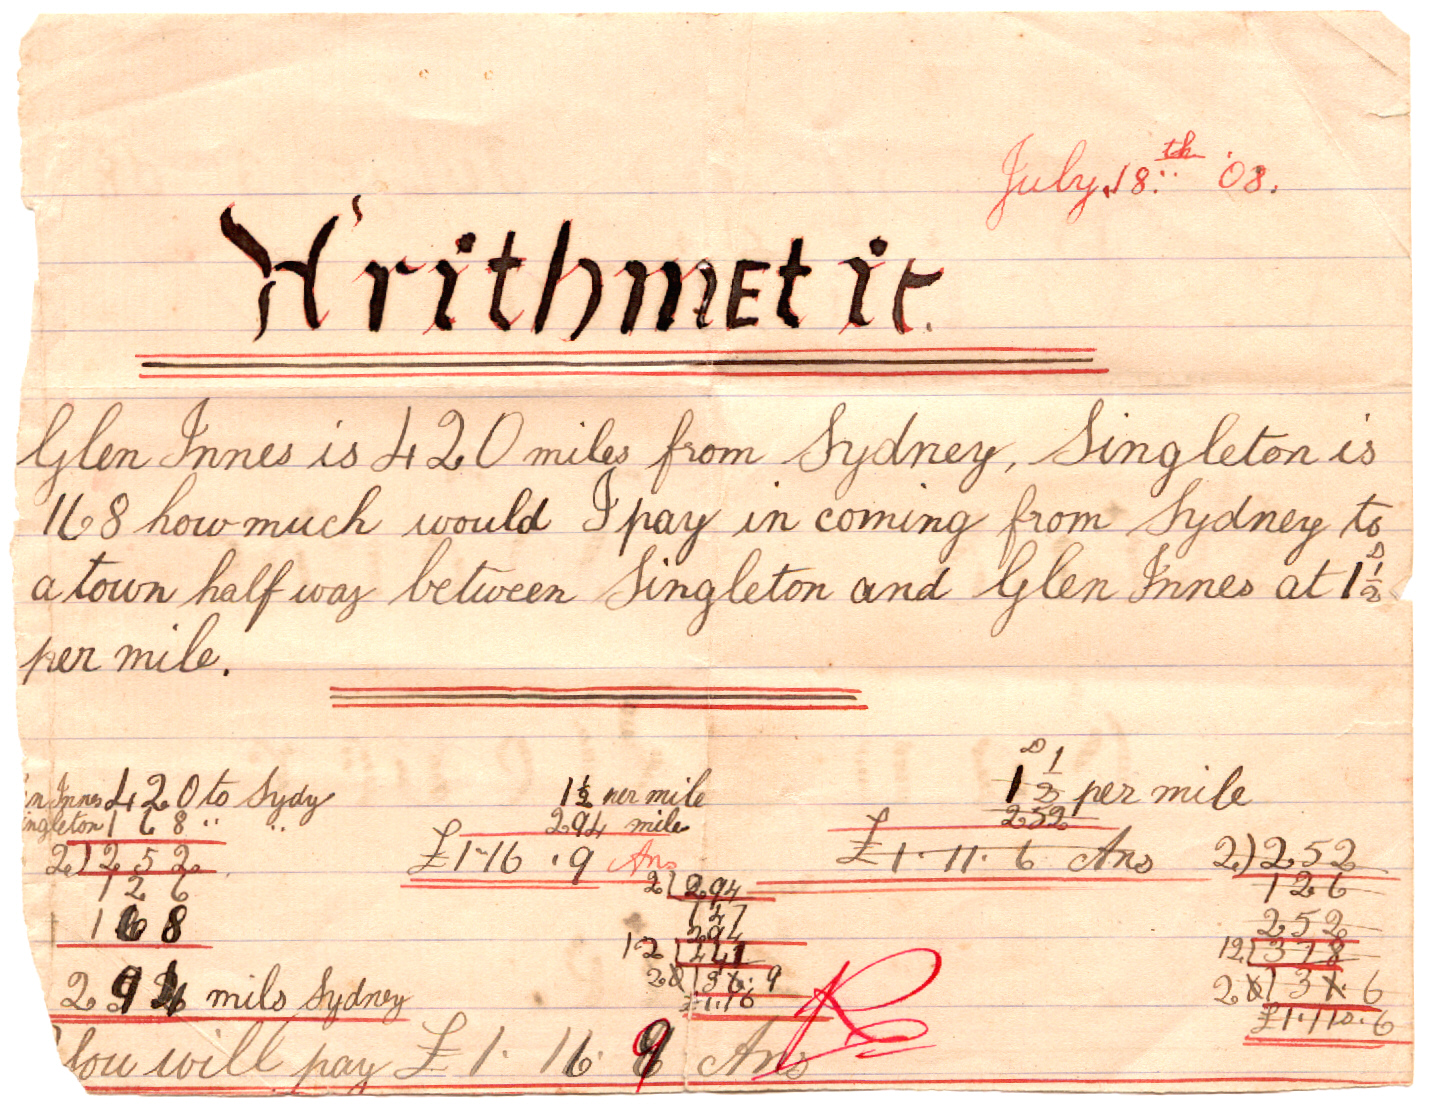 July, 18th '08.
Arithmetic.
Glen Innes is 420 miles from Sydney, Singleton is
168 how much would I pay in coming from Sydney to
a town half way between Singleton and Glen Innes at 1½ D
per mile.
n Innes 420 to Sydy
ingleton 168 " "
2)252
126
168
294 mils Sydney
1½ per mile
294 mile
£1-16.9 Ans
2)294
147
294
12)441
20)36.9
£1.16
1½ D per mile
252
£1.11.6 Ans
2)252
126
252
12)378
20)31.6
£1.11.6
You will pay £1.16.9 Ans
R